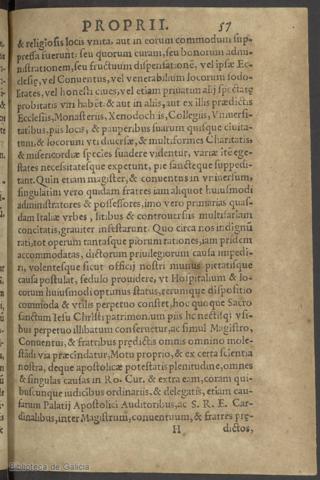 PROPRII. 57
& religiosis locis vnita, aut in eorum commodum sup-
pressa fuerunt: seu quorum curam, seu bonorum admi-
nistrationem, seu fructuum dispensationē, vel ipsæ Ec-
clesię, vel Conuentus, vel venerabilium locorum sodo-
litates, vel honesti ciues, vel etiam priuatim alij spectatę
probitatis viri habēt. & aut in aliis, aut ex illis prædictis
Ecclesiis, Monasteriis, Xenodochiis, Collegiis, Vniuersi-
tatibus, piis locis, & pauperibus suarum quisque ciuita-
tum, & locorum vti diuersæ, & multiformes Charitatis,
& misericordiæ species suadere videntur, variæ itē ege-
states necessitatesque expetunt, piè sanctéque suppedi-
tant. Quin etiam magister, & conuentus in vniuersum,
singulatim vero quidam fratres iam aliquot huiusmodi
administratores & possessores, imo vero primarias quas-
dam Italiæ vrbes, litibus & controuersiis multifariam
concitatis, grauiter infestarunt. Quo circa nos indignū
rati, tot operum tantasque piorum rationes, iam pridem
accommodatas, dictorum priuilegiorum causa impedi-
ri, volentesque sicut officij nostri munus pietatisque
causa postulat, sedulo prouidere, vt Hospitalium & lo-
corum huiusmodi optimus status, rerumque dispositio
commoda & vtilis perpetuo constet, hoc quoque Sacro
sanctum Iesu Christi patrimonium piis hic nectisqi vsi-
bus perpetuo illibatum conseruetur, ac simul Magistro,
Conuentui, & fratribus prędictis omnis omnino mole-
stādi via præcindatur, Motu proprio, & ex certa scientia
nostra, deque apostolicæ potestatis plenitudine, omnes
& singulas causas in Ro. Cur. & extra eam, coram qui-
buscunque iudicibus ordinariis, & delegatis, etiam cau-
sarum Palatij Apostolici Auditoribus, ac S. R. E. Car-
dinalibus, inter Magistrum, conuentuum, & fratres prę-
H dictos,
Biblioteca de Galicia